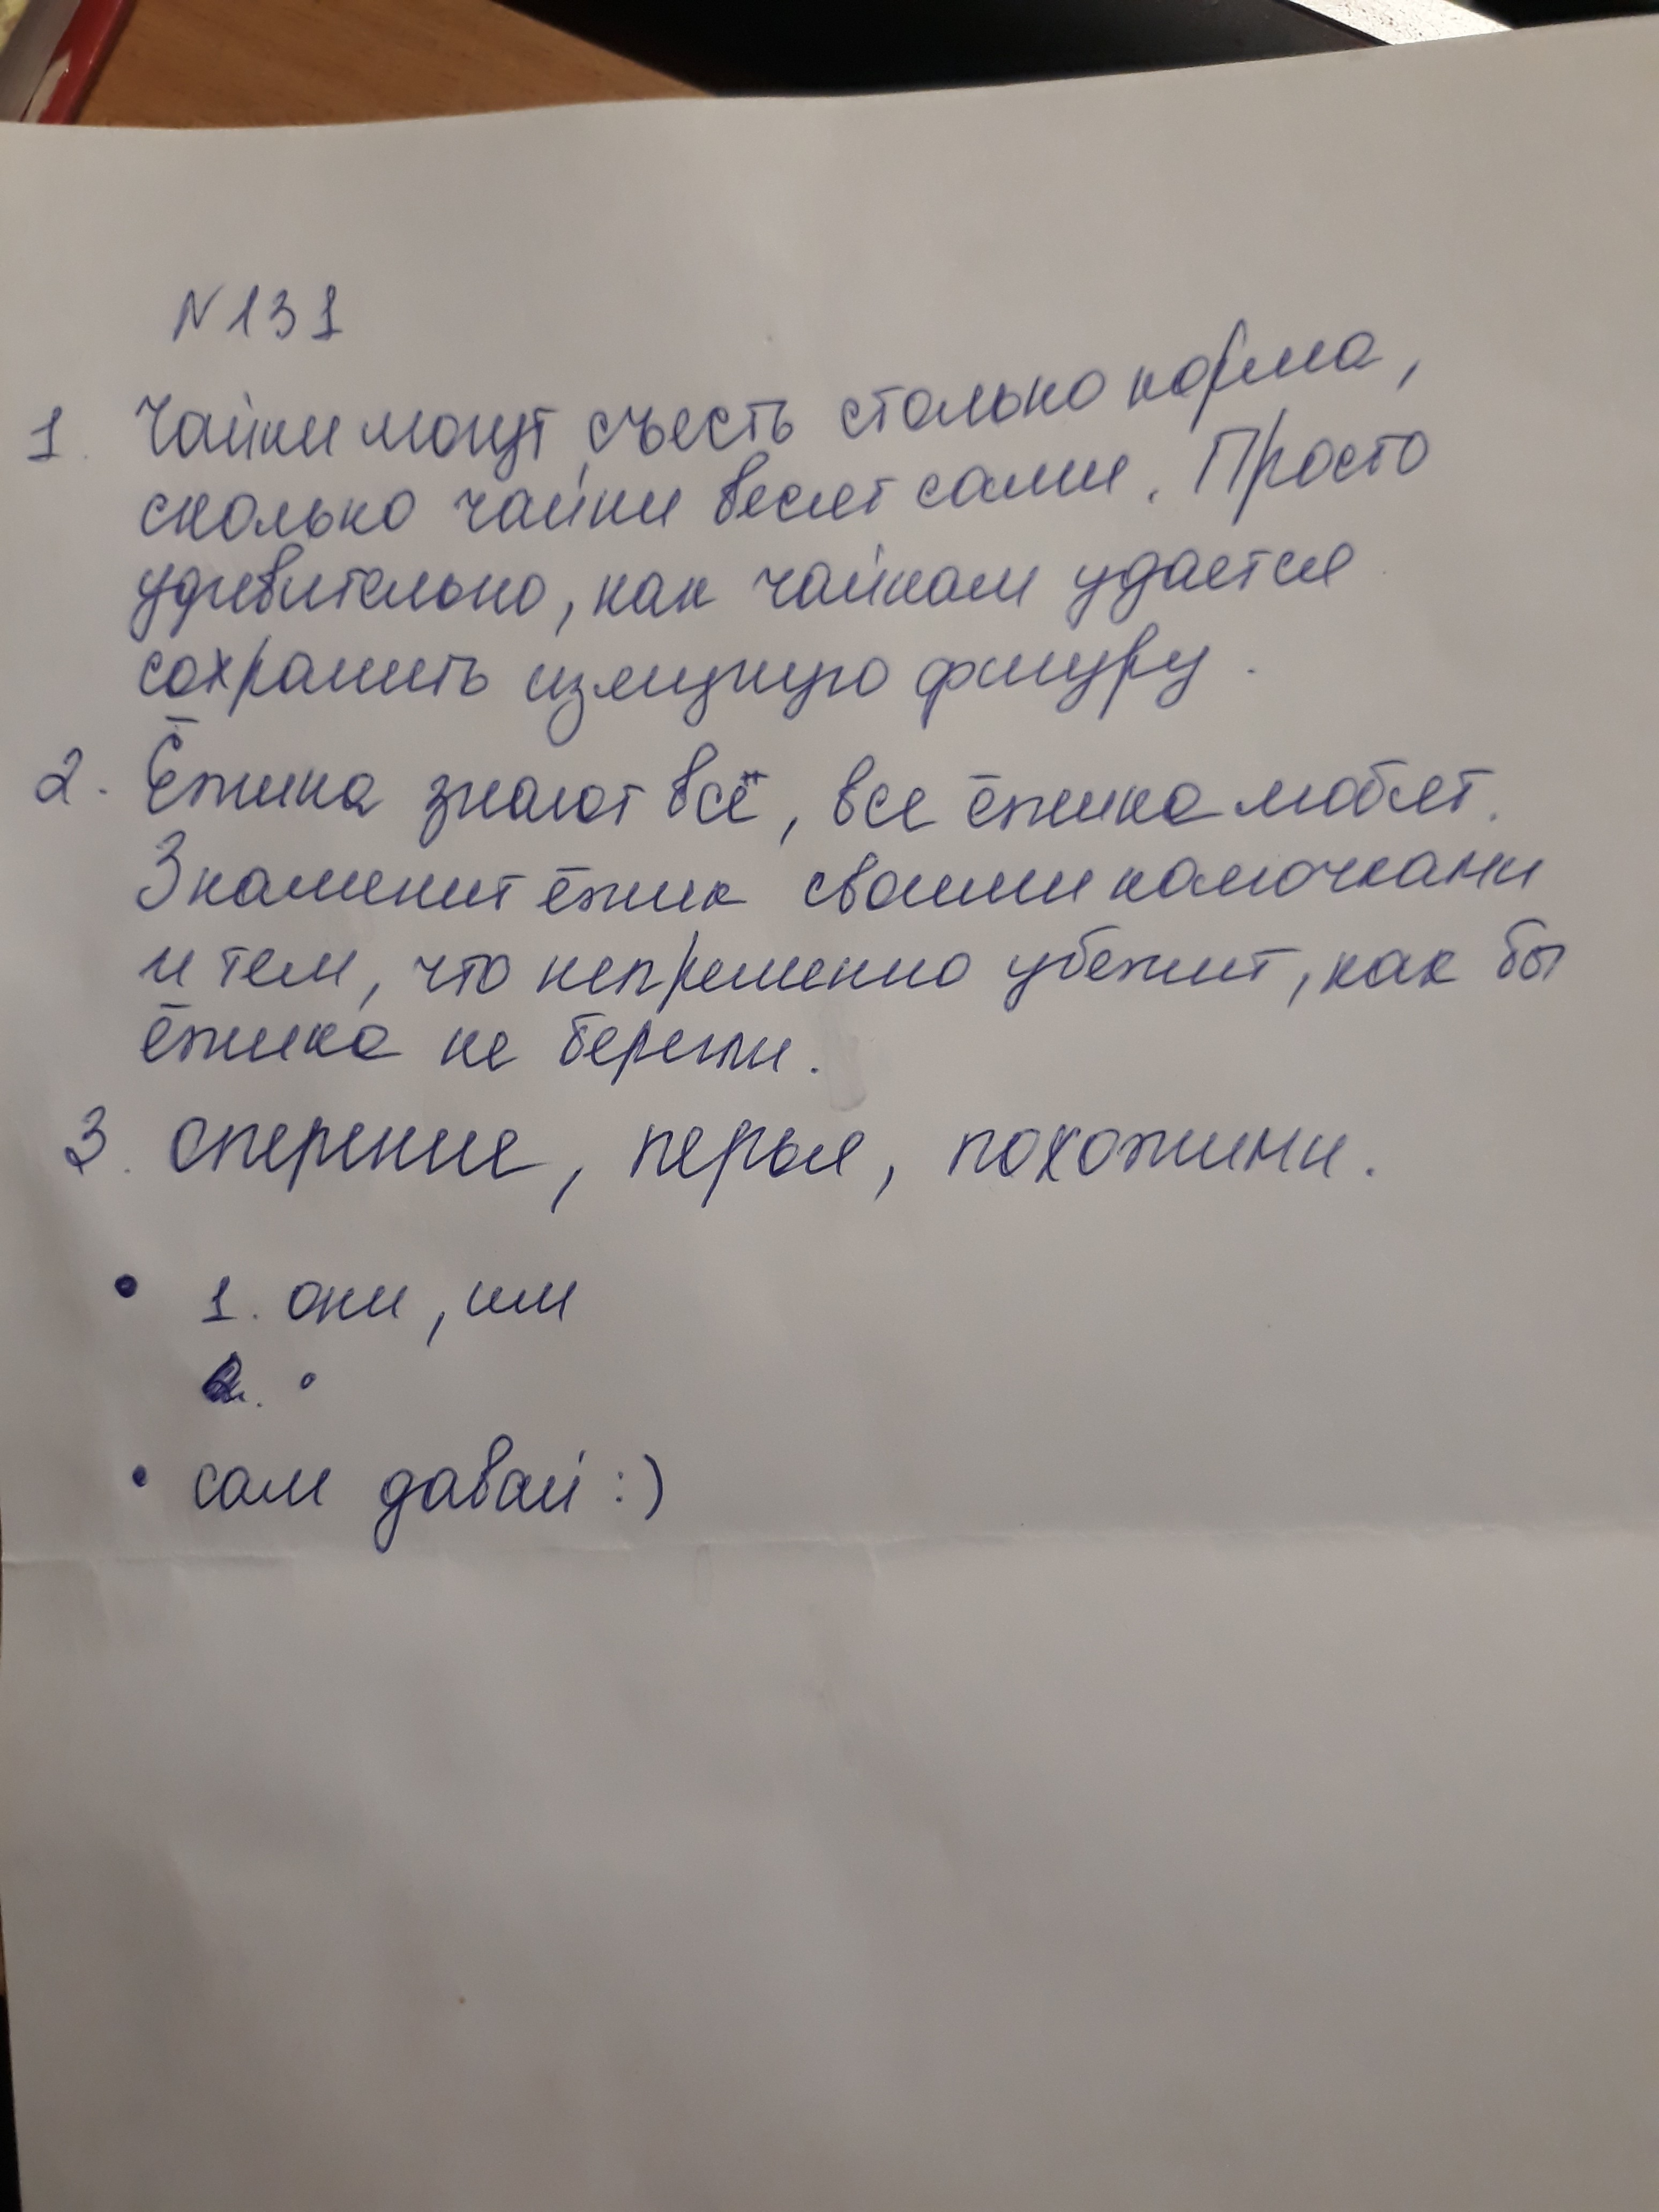 N 131
1. Чайки могут съесть столько корма,
сколько чайки весят сами. Просто
удивительно, как чайкам удается
сохранить изящную фигуру.
2. Ёжика знают всё, все ёжика любят.
Знаменит ёжик своими колючками
и тем, что непременно убежит, как бы
ёжика не берегли.
3. оперение, перья, похожими.
• 1. они, им
2.
• сам давай :)